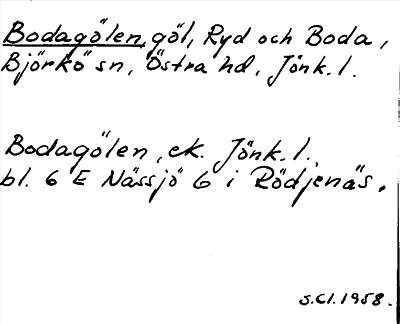 Bodagölen, göl, Ryd och Boda,
Björkö sn, Östra hd, Jönk. l.
Bodagölen, ek. Jönk. l.,
bl. 6 E Nässjö 6 i Rödjenäs.
S.Cl. 1958.